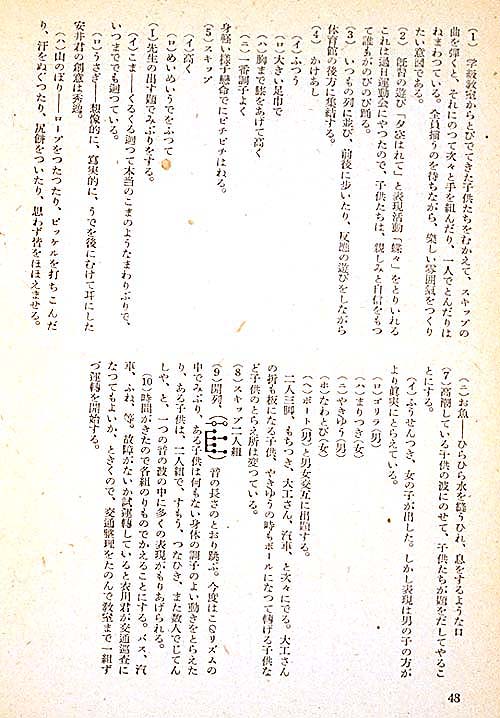 (1) 学級教室からとびでてきた子供たちをむかえて、スキップの
曲を弾くと、それにのつて次々と手を組んだり、一人でとんだりは
ねまわつている。全員揃うのを待ちながら、楽しい雰囲氣をつくり
たい意図である。
(2) 既習の遊び「夕空はれて」と表現活動「蝶々」をとりいれる
これは過日運動会にやつたので、子供たちは、親しみと自信をもつ
て誰もがのびのび踊る。
(3) いつもの列に並び、前後に歩いたり、反應の遊びをしながら
体育館の後方に集結する。
(4) かけあし
(イ)ふつう
(ロ)大きい足巾で
(ハ)胸まで膝をあげて高く
(ニ)一番調子よく
身軽い様子懸命でにピチピチはねる。
(5) スキップ
(イ)高く
(ロ)めいめいうでをふつて
(1)先生の出す題でみぶりをする。
(イ)こま――くるくる廻つて本当のこまのようなまわりぶりで、
いつまででも廻つている。
(ロ)うさぎ――想像的に、寫実的に、うでを後にむけて耳にした
安井君の創意は秀逸。
(ハ)山のぼり――ロープをつたつたり、ピッケルを打ちこんだ
り、汗をぬぐつたり、尻餅をついたり、思わず皆をほほえませる。
(ニ)お魚――ひらひら水を縫うひれ、息をするような口
(7) 高潮している子供の波にのせて、子供たちが題をだしてやるこ
とにする。
(イ)ふうせんつき、女の子が出した。しかし表現は男の子の方が
より眞実にとらえている。
(ロ)ゴリラ(男)
(ハ)まりつき(女)
(ニ)やきゆう(男)
(ホ)なわとび(女)
(ヘ)ボート(男)と男女交互に出題する。
二人三脚、もちつき、大工さん、汽車、と次々にでる。大工さん
の折も板になる子供、やきゆうの時もボールになつて轉げる子供な
ど子供のとらえ所は変つている。
(8) スキップ二人組
(9) 開列、 音の長さのとおり跳ぶ。今度はこのリズムの
中でみぶり、ある子供は何もない身体の調子のよい動きをとらえた
り、ある子供は、二人組で、すもう、つなひき、また数人でじてん
しや、と、一つの音の波の中に多くの表現がもりあげられる。
(10) 時間がきたので各組のりものでかえることにする。バス、汽
車、ふね、等。故障がないか試運轉していると衣川君が交通巡査に
なつてもよいか、ときくので、交通整理をたのんで教室まで一組ず
づ運轉を開始する。
48